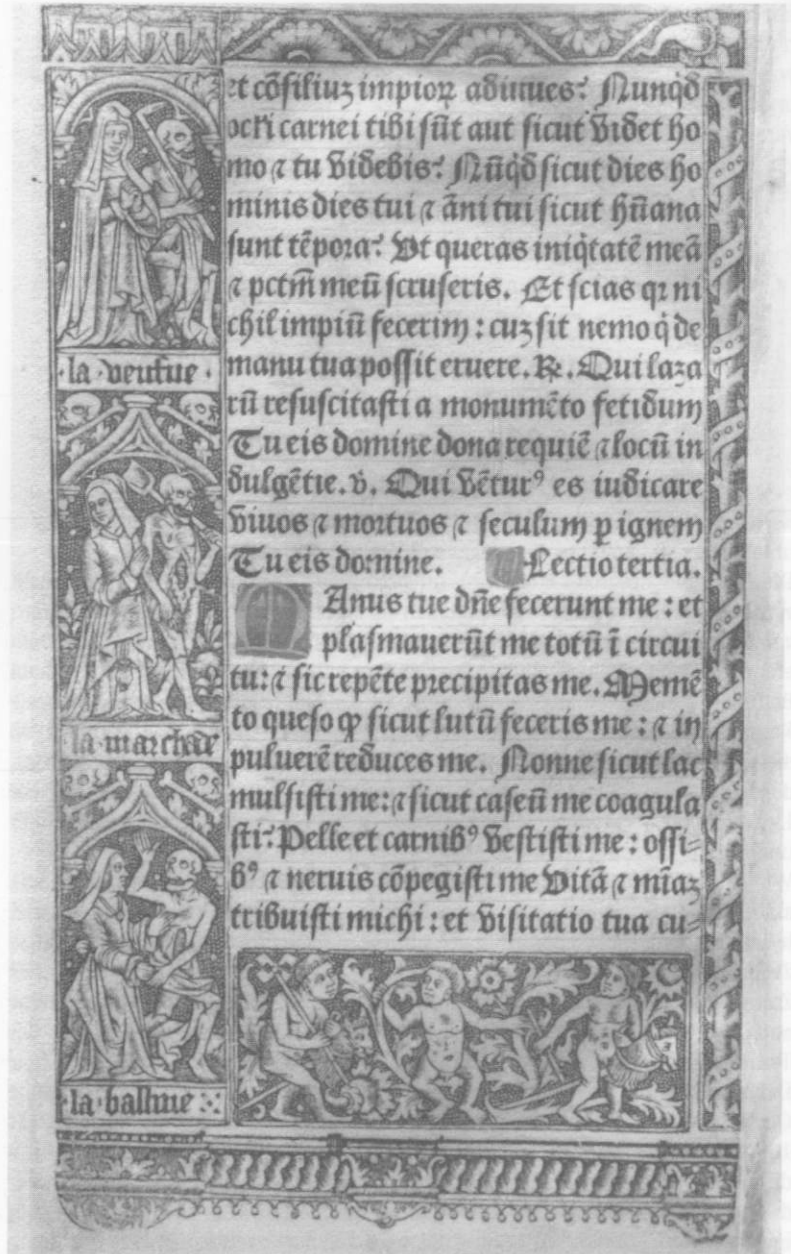 et cõsiliuz impioꝝ adiuues? Nunq̃d
oculi carnei tibi sũt aut sicut videt ho
mo ⁊ tu videbis? Nũq̃d sicut dies ho
minis dies tui ⁊ ãni tui sicut hũana
sunt tẽpora? Ut queras iniq̃tatẽ meã
⁊ pctm̃ meũ scruteris. Et scias qꝛ ni
chil impiũ fecerim : cuz sit nemo q̃ de
manu tua possit eruere. ℟. Qui laza
rũ resuscitasti a monumẽto fetidum
Tu eis domine dona requiẽ ⁊ locũ in
dulgẽtie. ṽ. Qui vẽturꝰ es iudicare
vivos ⁊ mortuos ⁊ seculum ꝑ ignem
Tu eis domine. Lectio tertia.
MAnus tue dñe fecerunt me : et
plasmaverũt me totũ ĩ circui
tu: ⁊ sic repẽte precipitas me. Memẽ
to queso ꝙ sicut lutũ feceris me : ⁊ in
pulverẽ reduces me. Nonne sicut lac
mulsisti me: ⁊ sicut caseũ me coagula
sti? Pelle et carnibꝰ vestisti me : ossi=
bꝰ ⁊ nervis cõpegisti me Vitã ⁊ mĩaz
tribuisti michi : et visitatio tua cu=
·la·veufue·
·la·marchãe
·la·baillive